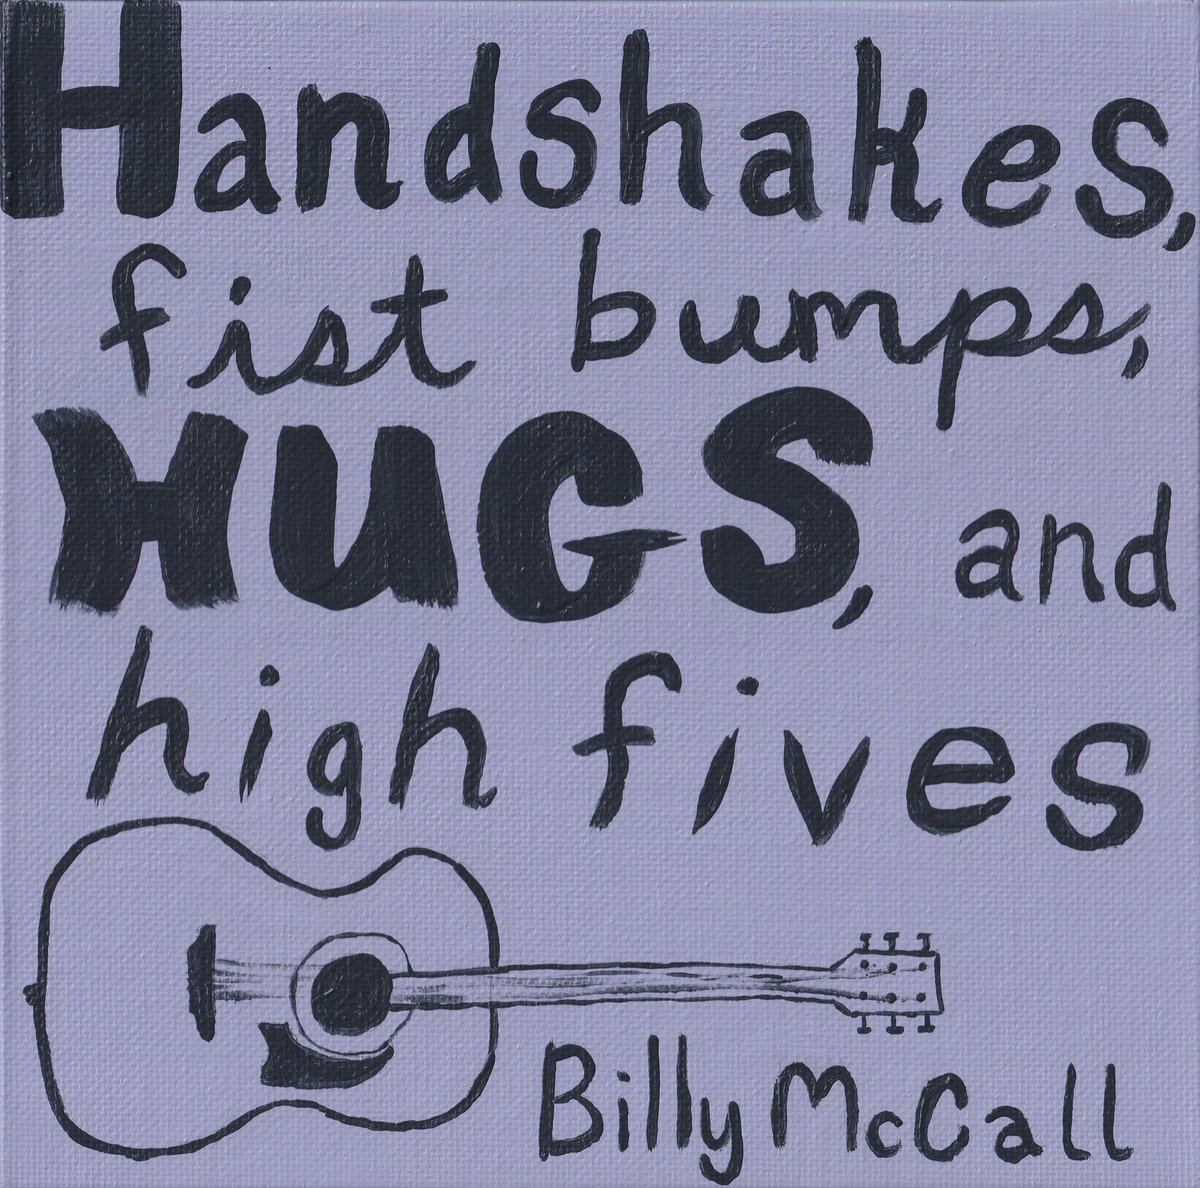 Handshakes,
fist bumps,
HUGS, and
high fives
Billy McCall